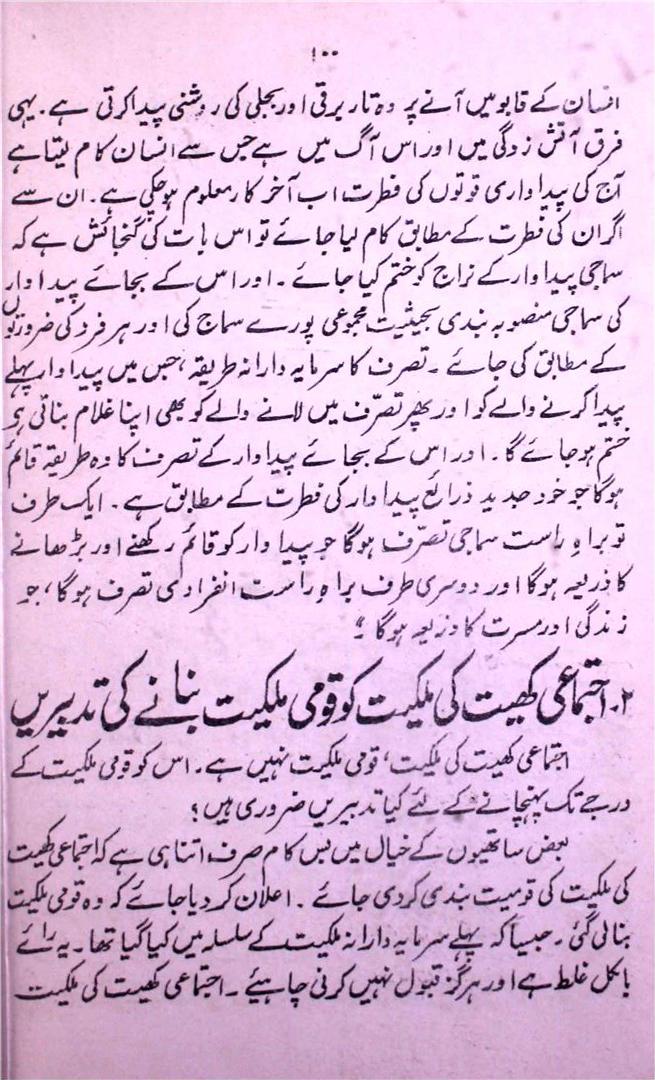 ۱۰۰
انسان کے قابو میں آنے پر وہ تار برقی اور بجلی کی روشنی پیدا کرتی ہے۔ یہی
فرق آتش زدگی میں اور اس آگ میں ہے جس سے انسان کام لیتا ہے
آج کی پیداواری قوتوں کی فطرت اب آخر کار معلوم ہوچکی ہے۔ ان سے
اگر ان کی فطرت کے مطابق کام لیا جائے تو اس بات کی گنجائش ہے کہ
سماجی پیداوار کے نراج کو ختم کیا جائے۔ اور اس کے بجائے پیداوار
کی سماجی منصوبہ بندی بحیثیت مجموعی پورے سماج کی اور ہر فرد کی ضرورتوں
کے مطابق کی جائے۔ تصرف کا سرمایہ دارانہ طریقہ، جس میں پیداوار پہلے
پیدا کرنے والے کو اور پھر تصرّف میں لانے والے کو بھی اپنا غلام بناتی ہے
ختم ہوجائے گا۔ اور اس کے بجائے پیداوار کے تصرف کا وہ طریقہ قائم
ہوگا جو خود جدید ذرائع پیداوار کی فطرت کے مطابق ہے۔ ایک طرف
تو براہِ راست سماجی تصرّف ہوگا جو پیداوار کو قائم رکھنے اور بڑھانے
کا ذریعہ ہوگا اور دوسری طرف براہِ راست انفرادی تصرف ہوگا، جو
زندگی اور مسرت کا ذریعہ ہوگا۔"
۲۔ اجتماعی کھیت کی ملکیت کو قومی ملکیت بنانے کی تدبیریں
اجتماعی کھیت کی ملکیت، قومی ملکیت نہیں ہے۔ اس کو قومی ملکیت کے
درجے تک پہنچانے کے لئے کیا تدبیریں ضروری ہیں؟
بعض ساتھیوں کے خیال میں بس کام صرف اتنا ہی ہے کہ اجتماعی کھیت
کی ملکیت کی قومیت بندی کردی جائے۔ اعلان کر دیا جائے کہ وہ قومی ملکیت
بنالی گئی۔ جیسا کہ پہلے سرمایہ دارانہ ملکیت کے سلسلہ میں کیا گیا تھا۔ یہ رائے
بالکل غلط ہے اور ہرگز قبول نہیں کرنی چاہیئے۔ اجتماعی کھیت کی ملکیت